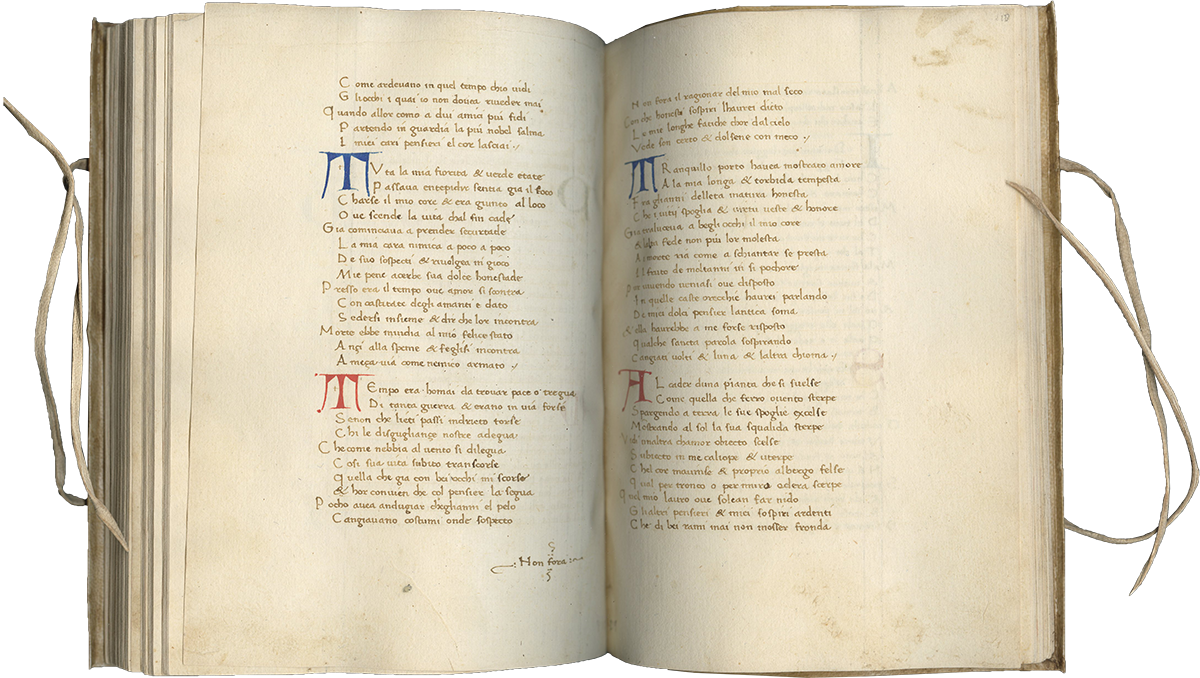 Come ardeuano in quel tempo chio uidi
Gli occhi i quai io non douea riueder mai
Quando allor como a dui amici piu fidi
Partendo in guardia la piu nobel salma
I miei cari pensieri el cor lasciai
TVta la mia fiorita & uerde etate
Passaua entepidir sentia gia il foco
Charse il mio core & era giunto al loco
Oue scende la uita chal fin cade
Gia cominciaua a prender securtade
La mia cara nimica a poco a poco
De suo sospecti & riuolgea in gioco
Mie pene acerbe sua dolce honestade
Presso era il tempo oue amor si scontra
Con castitate & agli amanti e dato
Sedersi insieme & dir che lor incontra
Morte ebbe inuidia al mio felice stato
Ançi alla speme & feglisi incontra
A meça uia come nemico armato
TEmpo era homai da trouar pace o tregua
Di tanta guerra & erano in uia forse
Se non che lieti passi indrieto torse
Chi le disguglianze nostre adegua
Che come nebbia al uento si dilegua
Cosi sua uita subito transcorse
Quella che gia con bei occhi mi scorse
& hor conuien che col pensier la segua
Pocho auea andugiar che gli anni el pelo
Cangiauano costumi onde sospecto
Non fora
118
Non fora il ragionar del mio mal seco
Con che honesti sospiri lhaurei dicto
Le mie longhe fatiche chor dal cielo
Vede son certo & dolsene con meco
TRanquillo porto hauea mostrato amore
A la mia longa & torbida tempesta
Fra gli anni delleta matura honesta
Che i uitij spoglia & uirtu ueste & honore
Gia traluceua a begli occhi il mio core
& lalta fede non piu lor molesta
Ai morte ria come a schiantar se presta
Il fruto de moltanni in si poche hore
Pur uiuendo ueniasi oue disposto
In quelle caste orecchie haurei parlando
De miei dolci pensier lantica soma
& ella haurebbe a me forse risposto
Qualche sancta parola sospirando
Cangiati uolti & luna & laltra chioma
AL cader duna pianta che si suelse
Come quella che ferro o uento sterpe
Spargendo a terra le sue spoglie excelse
Mostrando al sol la sua squalida sterpe
Vidi unaltra chamor obiecto scelse
Subiecto in me caliope & uterpe
Chel cor mauinse & proprio albergo felse
Qual per tronco o per muro edera serpe
Quel mio lauro oue solean far nido
Gli altri pensieri & miei sospiri ardenti
Che di bei rami mai non mosser fronda